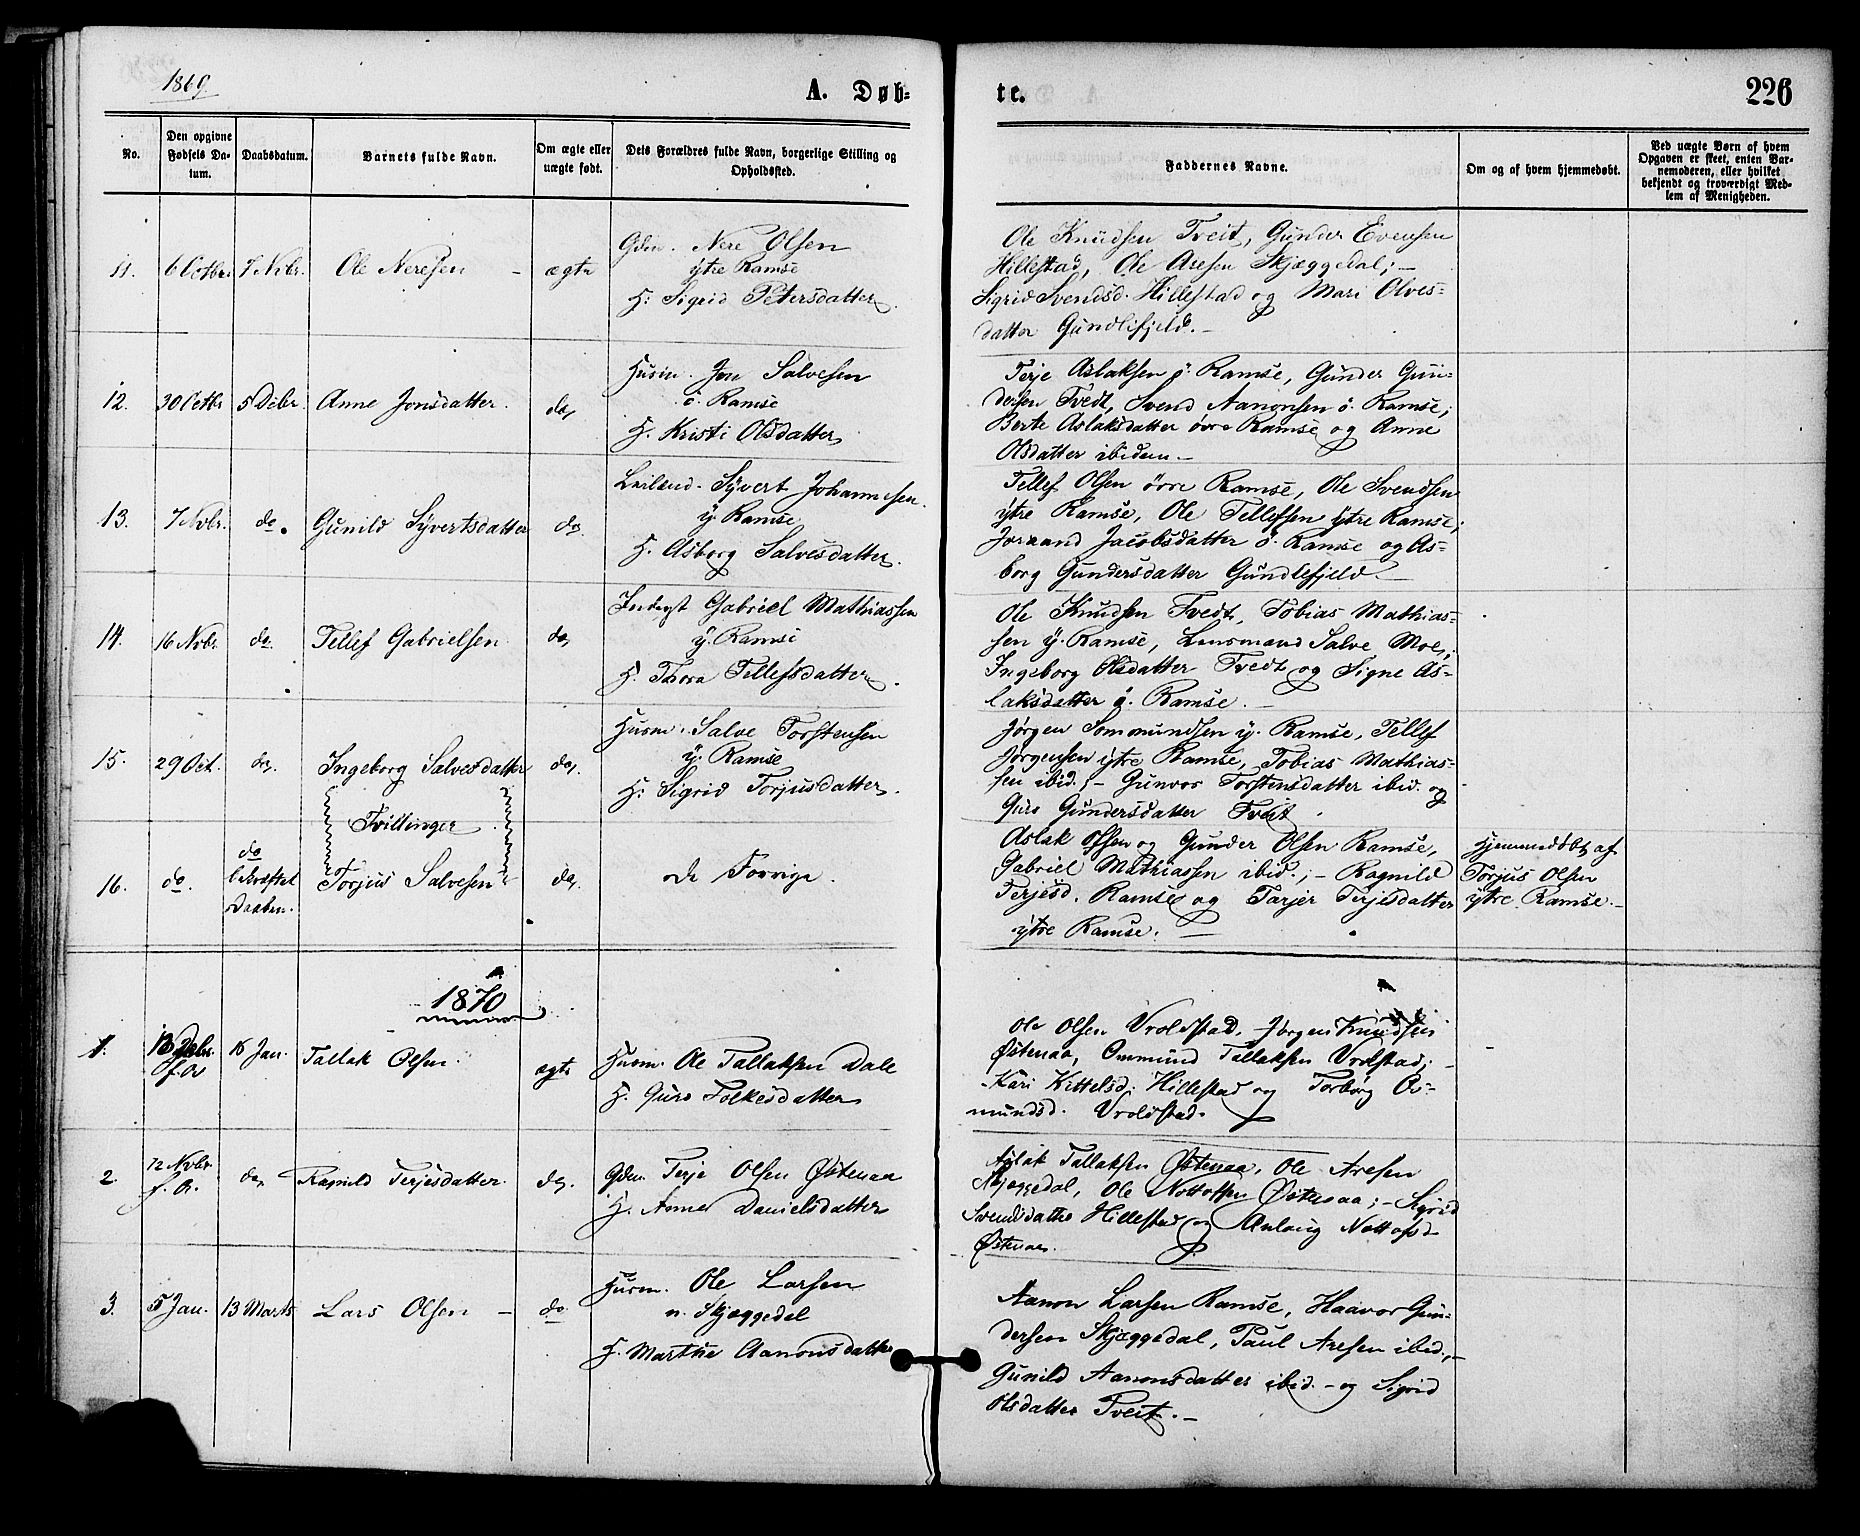 1869.
A. Døb-
te.
226
No.
Den opgivne Fødsels Da-tum.
Daabsdatum.
Barnets fulde Navn.
Om ægte eller uægte født.
Dets Forældres fulde Navn, borgerlige Stilling og Opholdssted.
Faddernes Navne.
Om og af hvem hjemmedøbt.
Ved uægte Børn af hvem Opgaven er skeet, enten Bar-nemoderen, eller hvilket bekjendt og troværdigt Med-lem af Menigheden.
11.
6 Octbr.
7 Nvbr.
Ole Neresen
ægte
Gdm. Nere Olsen
ytre Ramse
H: Sigrid Petersdatter.
Ole Knudsen Tveit, Gunder Evensen
Hillestad, Ole Aresen Skjæggedal; -
Sigrid Svendsd. Hillestad og Mari Olves-
datter Gundlifjeld. -
12.
30 Octbr
5 Debr.
Anne Jonsdatter.
do,
Husm. Jon Salvesen
ö. Ramse
H. Kristi Olsdatter,
Terje Aslaksen ö. Ramse, Gunder Gun-
dersen Tvedt, Svend Aanonsen ö. Ramse;
Berte Aslaksdatter övre Ramse og Anne
Olsdatter ibidem. -
13.
7 Nvbr.
do.
Gunild Syvertsdatter
do.
Leilend. Syvert Johannesen.
y. Ramse
H. Asborg Salvesdatter.
Tellef Olsen övre Ramse, Ole Svendsen
ytre Ramse, Ole Tellefsen ytre Ramse;
Joraand Jacobsdatter ö. Ramse og As-
borg Gundersdatter Gundlefjeld. -
14.
16 Nvbr.
do.
Tellef Gabrielsen
do,
Inderst Gabriel Mathiassen
y. Ramse
H. Thora Tellefsdatter.
Ole Knudsen Tvedt, Tobias Mathias-
sen y. Ramse, Lensmand Salve Moe,
Ingeborg Olsdatter Tvedt og Signe As-
laksdatter ö. Ramse. -
15.
29 Oct.
do,
Ingeborg Salvesdatter
do,
Husm. Salve Torstensen
y. Ramse
H: Sigrid Torjusdatter.
Jørgen Sommundsen y. Ramse, Tellef
Jørgensen ytre Ramse, Tobias Mathias-
sen ibid.; - Gunvor Torstensdatter ibid. og
Guro Gundersdatter Tveit.
Tvillinger
16.
do.
do
bekræftet
Daaben.
Torjus Salvesen
do,
de Forrige.
Aslak Olsen og Gunder Olsen Ramse,
Gabriel Mathiassen ibid.; - Ragnild
Terjesd. Ramse og Tarjer Terjesdatter
ytre Ramse.
Hjemmedøbt af
Torjus Olsen
ytre Ramse. -
1870
1.
16 Jan.
Tallak Olsen.
ægte
Husm. Ole Tallaksen Dale
H. Guro Folkesdatter
Ole Olsen Vrolstad, Jørgen Knudsen
Østenaa, Ommund Tallaksen Vrolstad;
Kari Kittelsd. Hillestad og Torborg O-
mundsd. Vrolstad.
2.
12 Nvbr.
f. A.
do,
Ragnild Terjesdatter.
do,
Gdm. Terje Olsen Østenaa
H. Anne Danielsdatter
Aslak Tallaksen Østenaa, Ole Aresen
Skjæggedal, Ole Nottolfsen Østenaa; - Sigrid
Svendsdatter Hillestad og Anlaug Nottolfsd
Østenaa.
3.
5 Jan.
13 Marts
Lars Olsen -
do
Husm. Ole Larsen
n. Skjæggedal
H. Marthe Aanonsdatter
Aanon Larsen Ramse, Haavor Gun-
dersen Skjæggedal, Paul Aresen ibid., -
Gunild Aanonsdatter ibid. - og Sigrid
Olsdatter Tveit. -